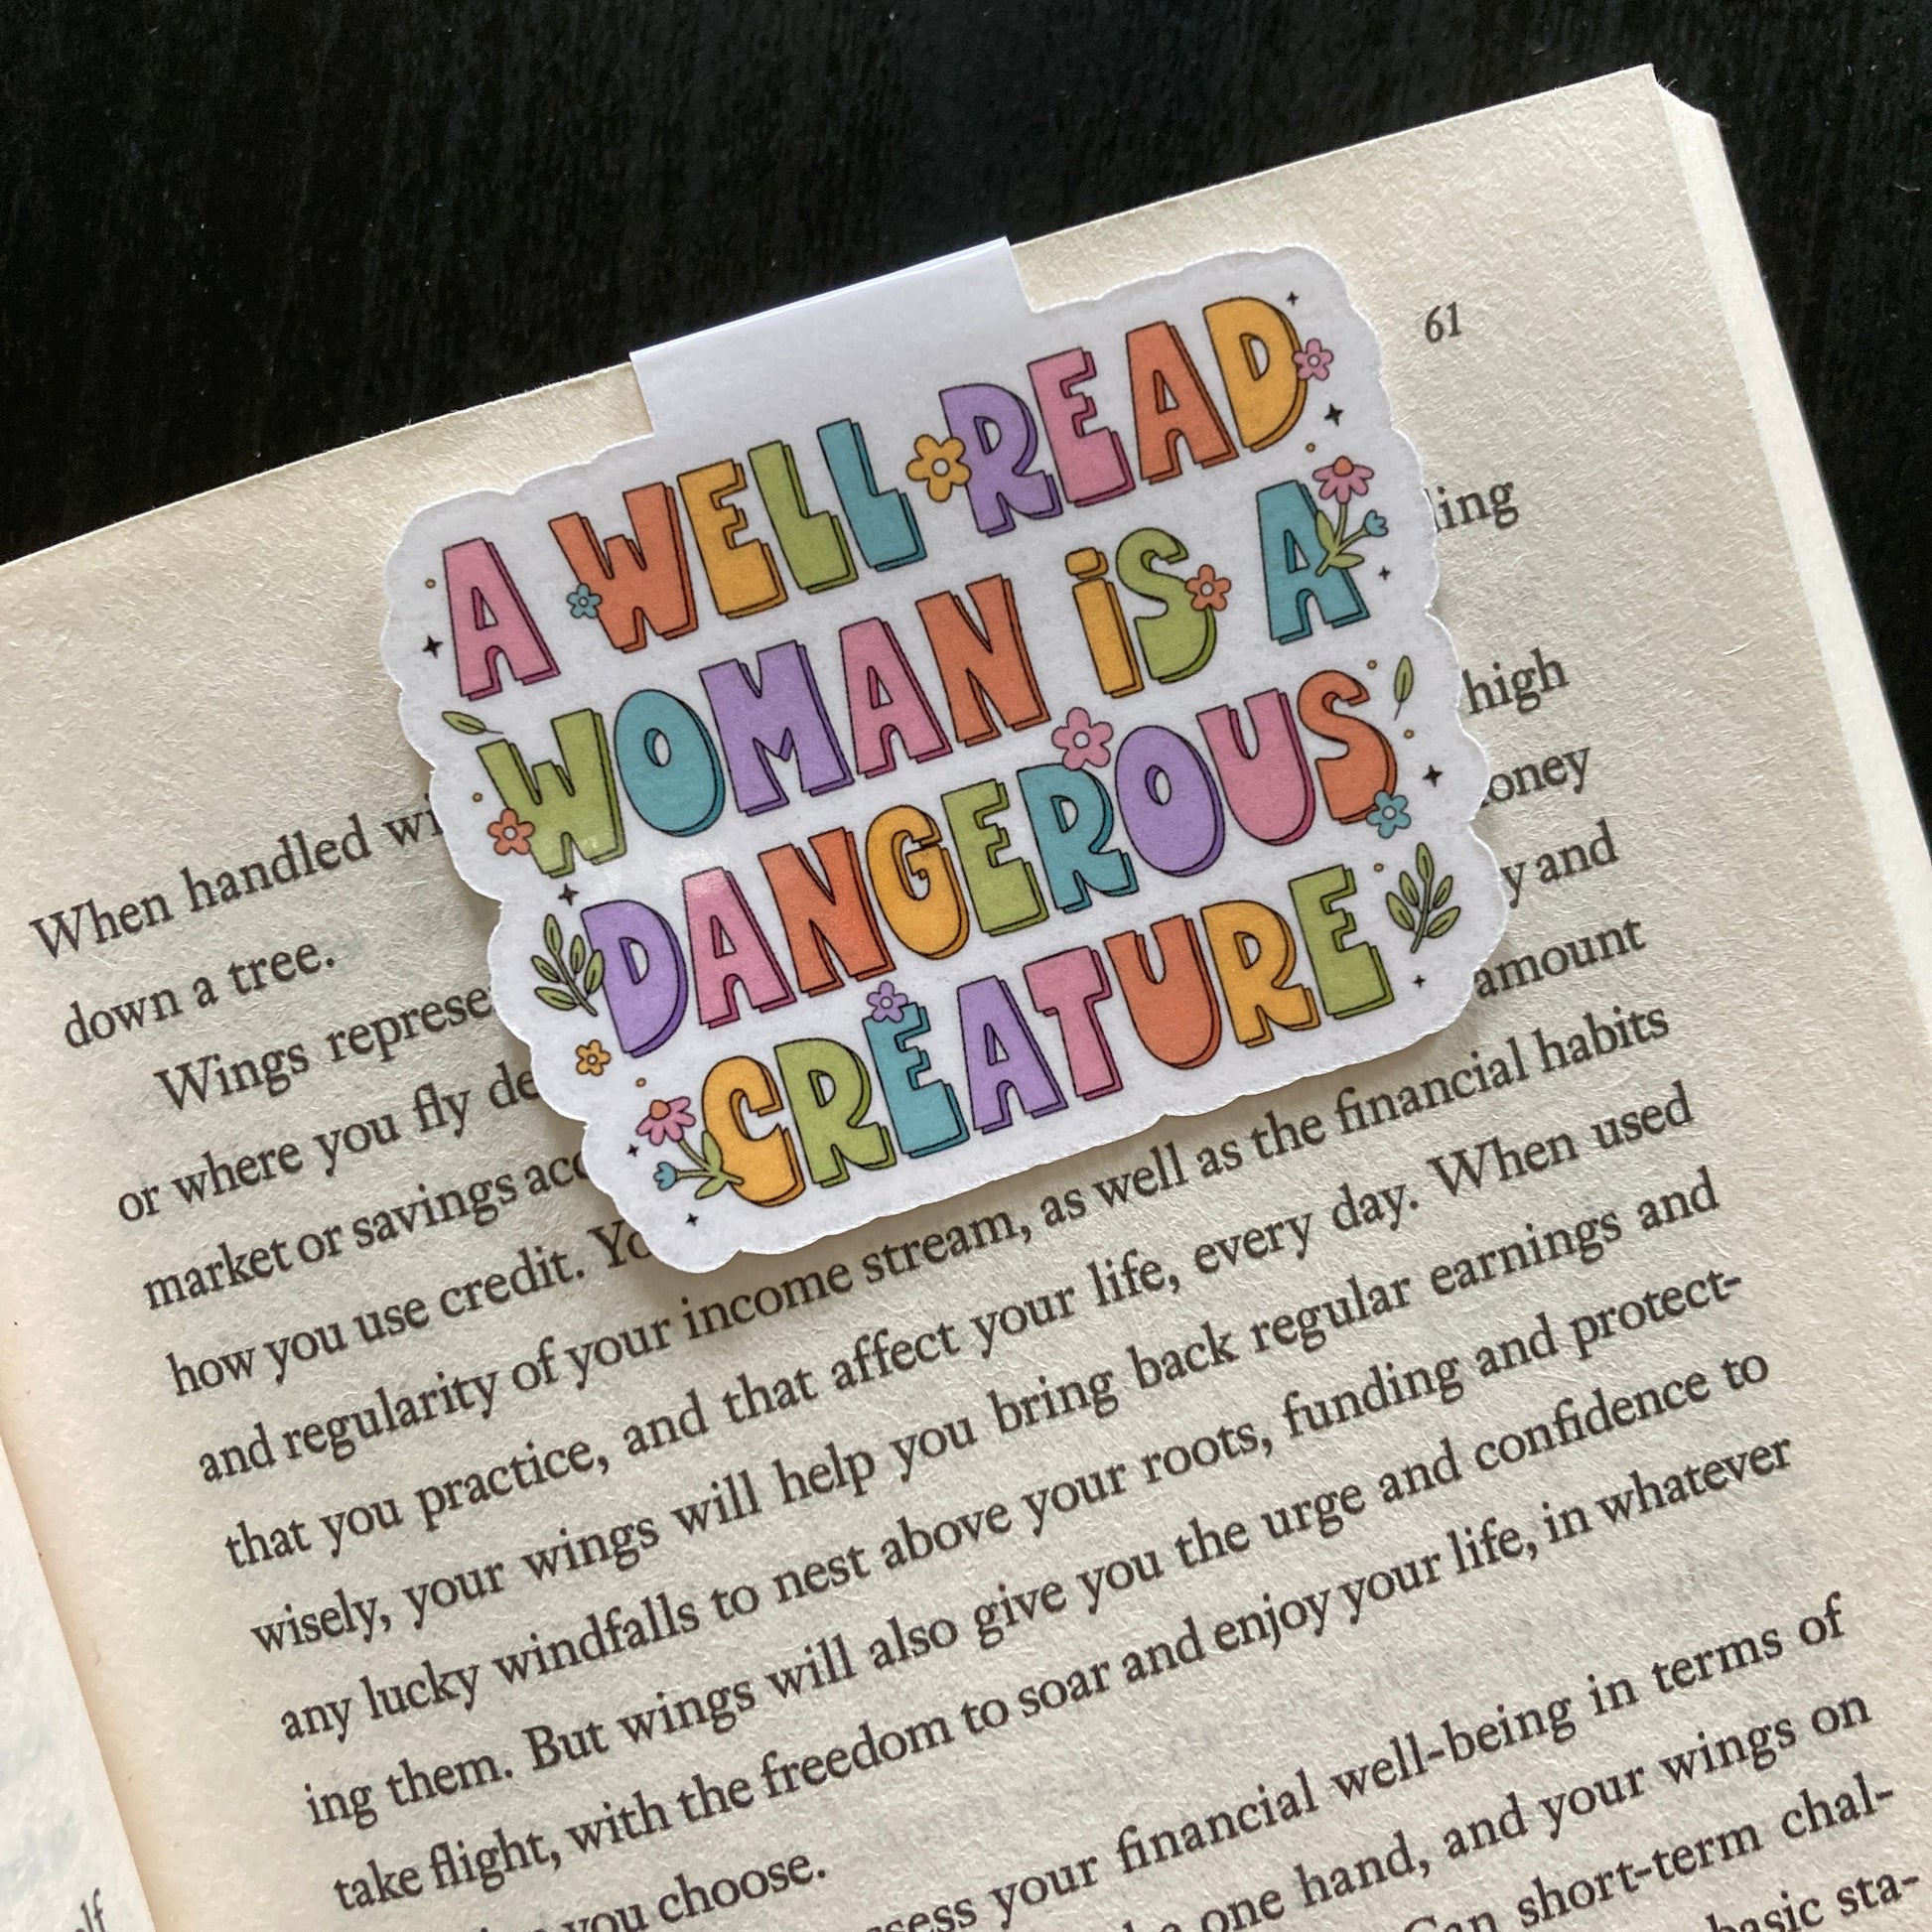 61
A WELL READ
WOMAN iS A
DANGEROUS
CREATURE
high
and
amount
When handled
down a tree.
Wings
or where you fly
market or savings
how you use credit.
and regularity of your income stream, as well as the financial habits
that you practice, and that affect your life, every day. When used
wisely, your wings will help you bring back regular earnings and
any lucky windfalls to nest above your roots, funding and protect-
ing them. But wings will also give you the urge and confidence to
take flight, with the freedom to soar and enjoy your life, in whatever
you choose.
your financial well-being in terms of
one hand, and your wings on
short-term chal-
basic sta-